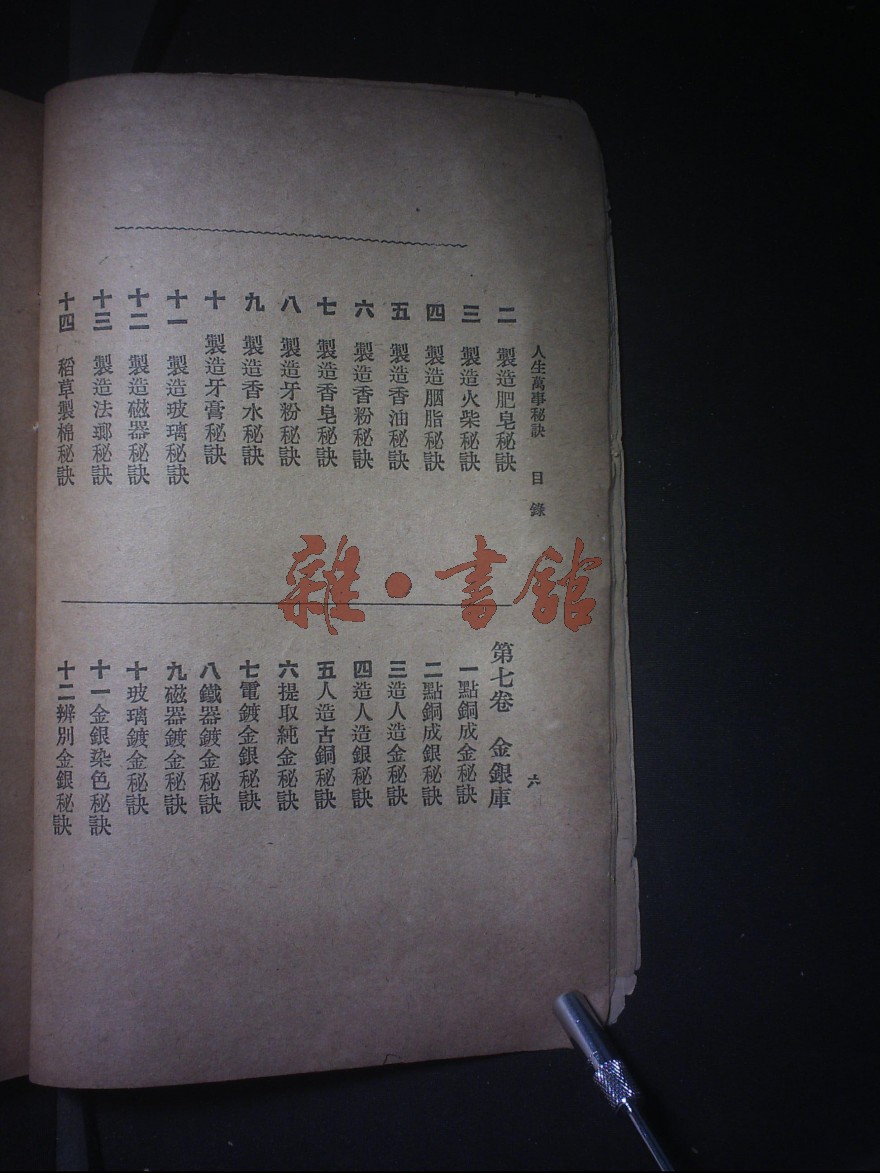 人生萬事秘訣 目錄 六
二 製造肥皂秘訣
三 製造火柴秘訣
四 製造胭脂秘訣
五 製造香油秘訣
六 製造香粉秘訣
七 製造香皂秘訣
八 製造牙粉秘訣
九 製造香水秘訣
十 製造牙膏秘訣
十一 製造玻璃秘訣
十二 製造磁器秘訣
十三 製造法瑯秘訣
十四 稻草製棉秘訣
第七卷 金銀庫
一 點銅成金秘訣
二 點銅成銀秘訣
三 造人造金秘訣
四 造人造銀秘訣
五 人造古銅秘訣
六 提取純金秘訣
七 電鍍金銀秘訣
八 鐵器鍍金秘訣
九 磁器鍍金秘訣
十 玻璃鍍金秘訣
十一 金銀染色秘訣
十二 辨別金銀秘訣
雜·書館